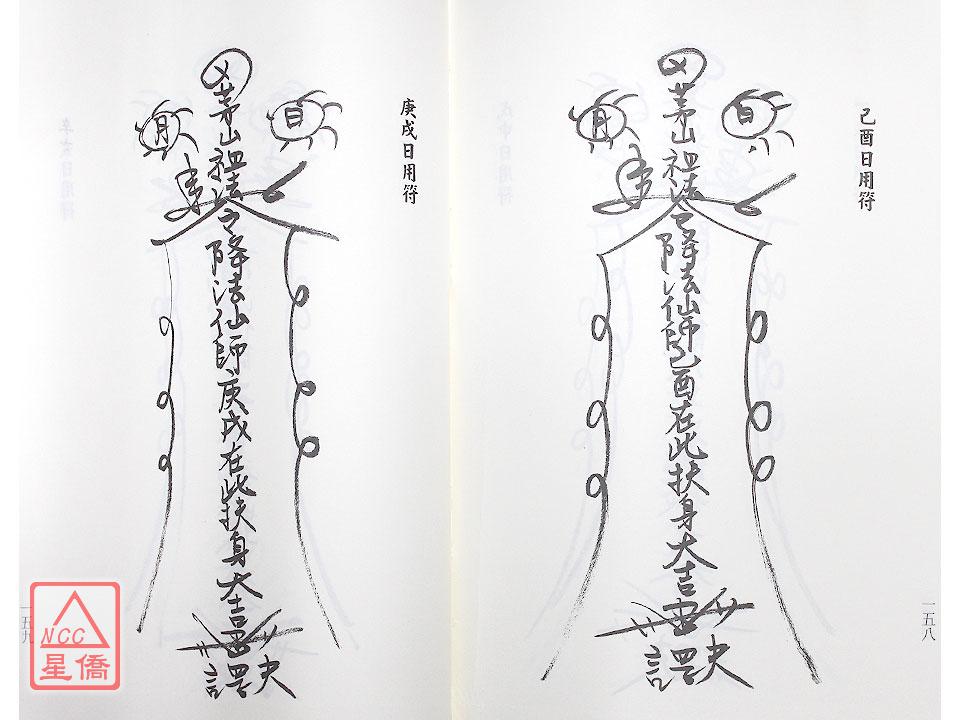 己酉日用符
日
月
茅山祖法令降法仙師己酉在此扶身大吉
一五八
庚戌日用符
日
月
茅山祖法令降法仙師庚戌在此扶身大吉
一五九
NCC
星僑